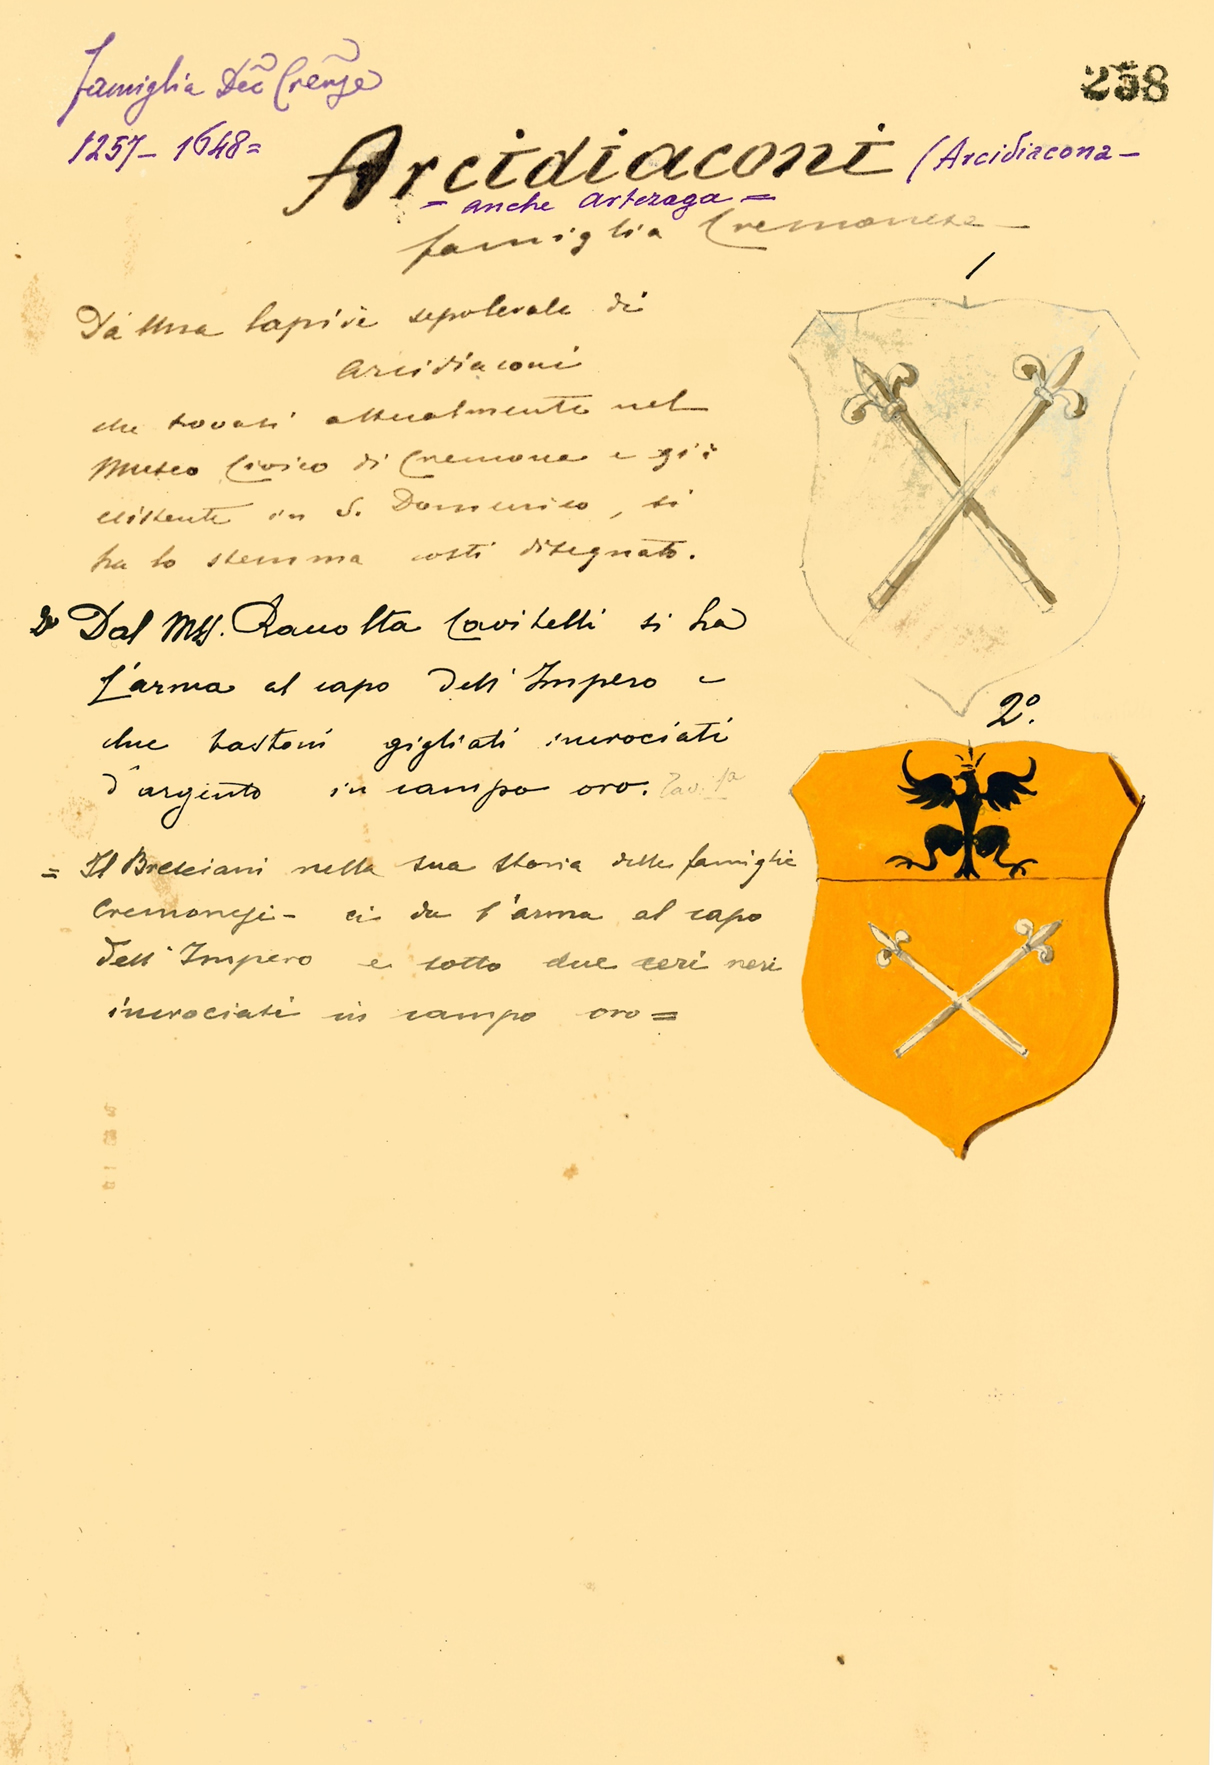 Famiglia Dec̃ Creñse
258
1257 - 1648 =
Arcidiaconi (Arcidiacona -
= anche Arteraga =
famiglia Cremonese -
1
Da una lapide sepolcrale di
Arcidiaconi
che trovasi attualmente nel
Museo Civico di Cremona e già
esistente in S. Domenico, si
ha lo stemma costì disegnato.
2º Dal MS. Raccolta Cavitelli si ha
L'arma al capo dell'Impero e
2º.
due bastoni gigliati incrociati
d'argento in campo oro. Tav. 1ª
= Il Bresciani nella sua storia delle famiglie
Cremonesi - ci da l'arma al capo
dell'Impero e sotto due ceri neri
incrociati in campo oro =